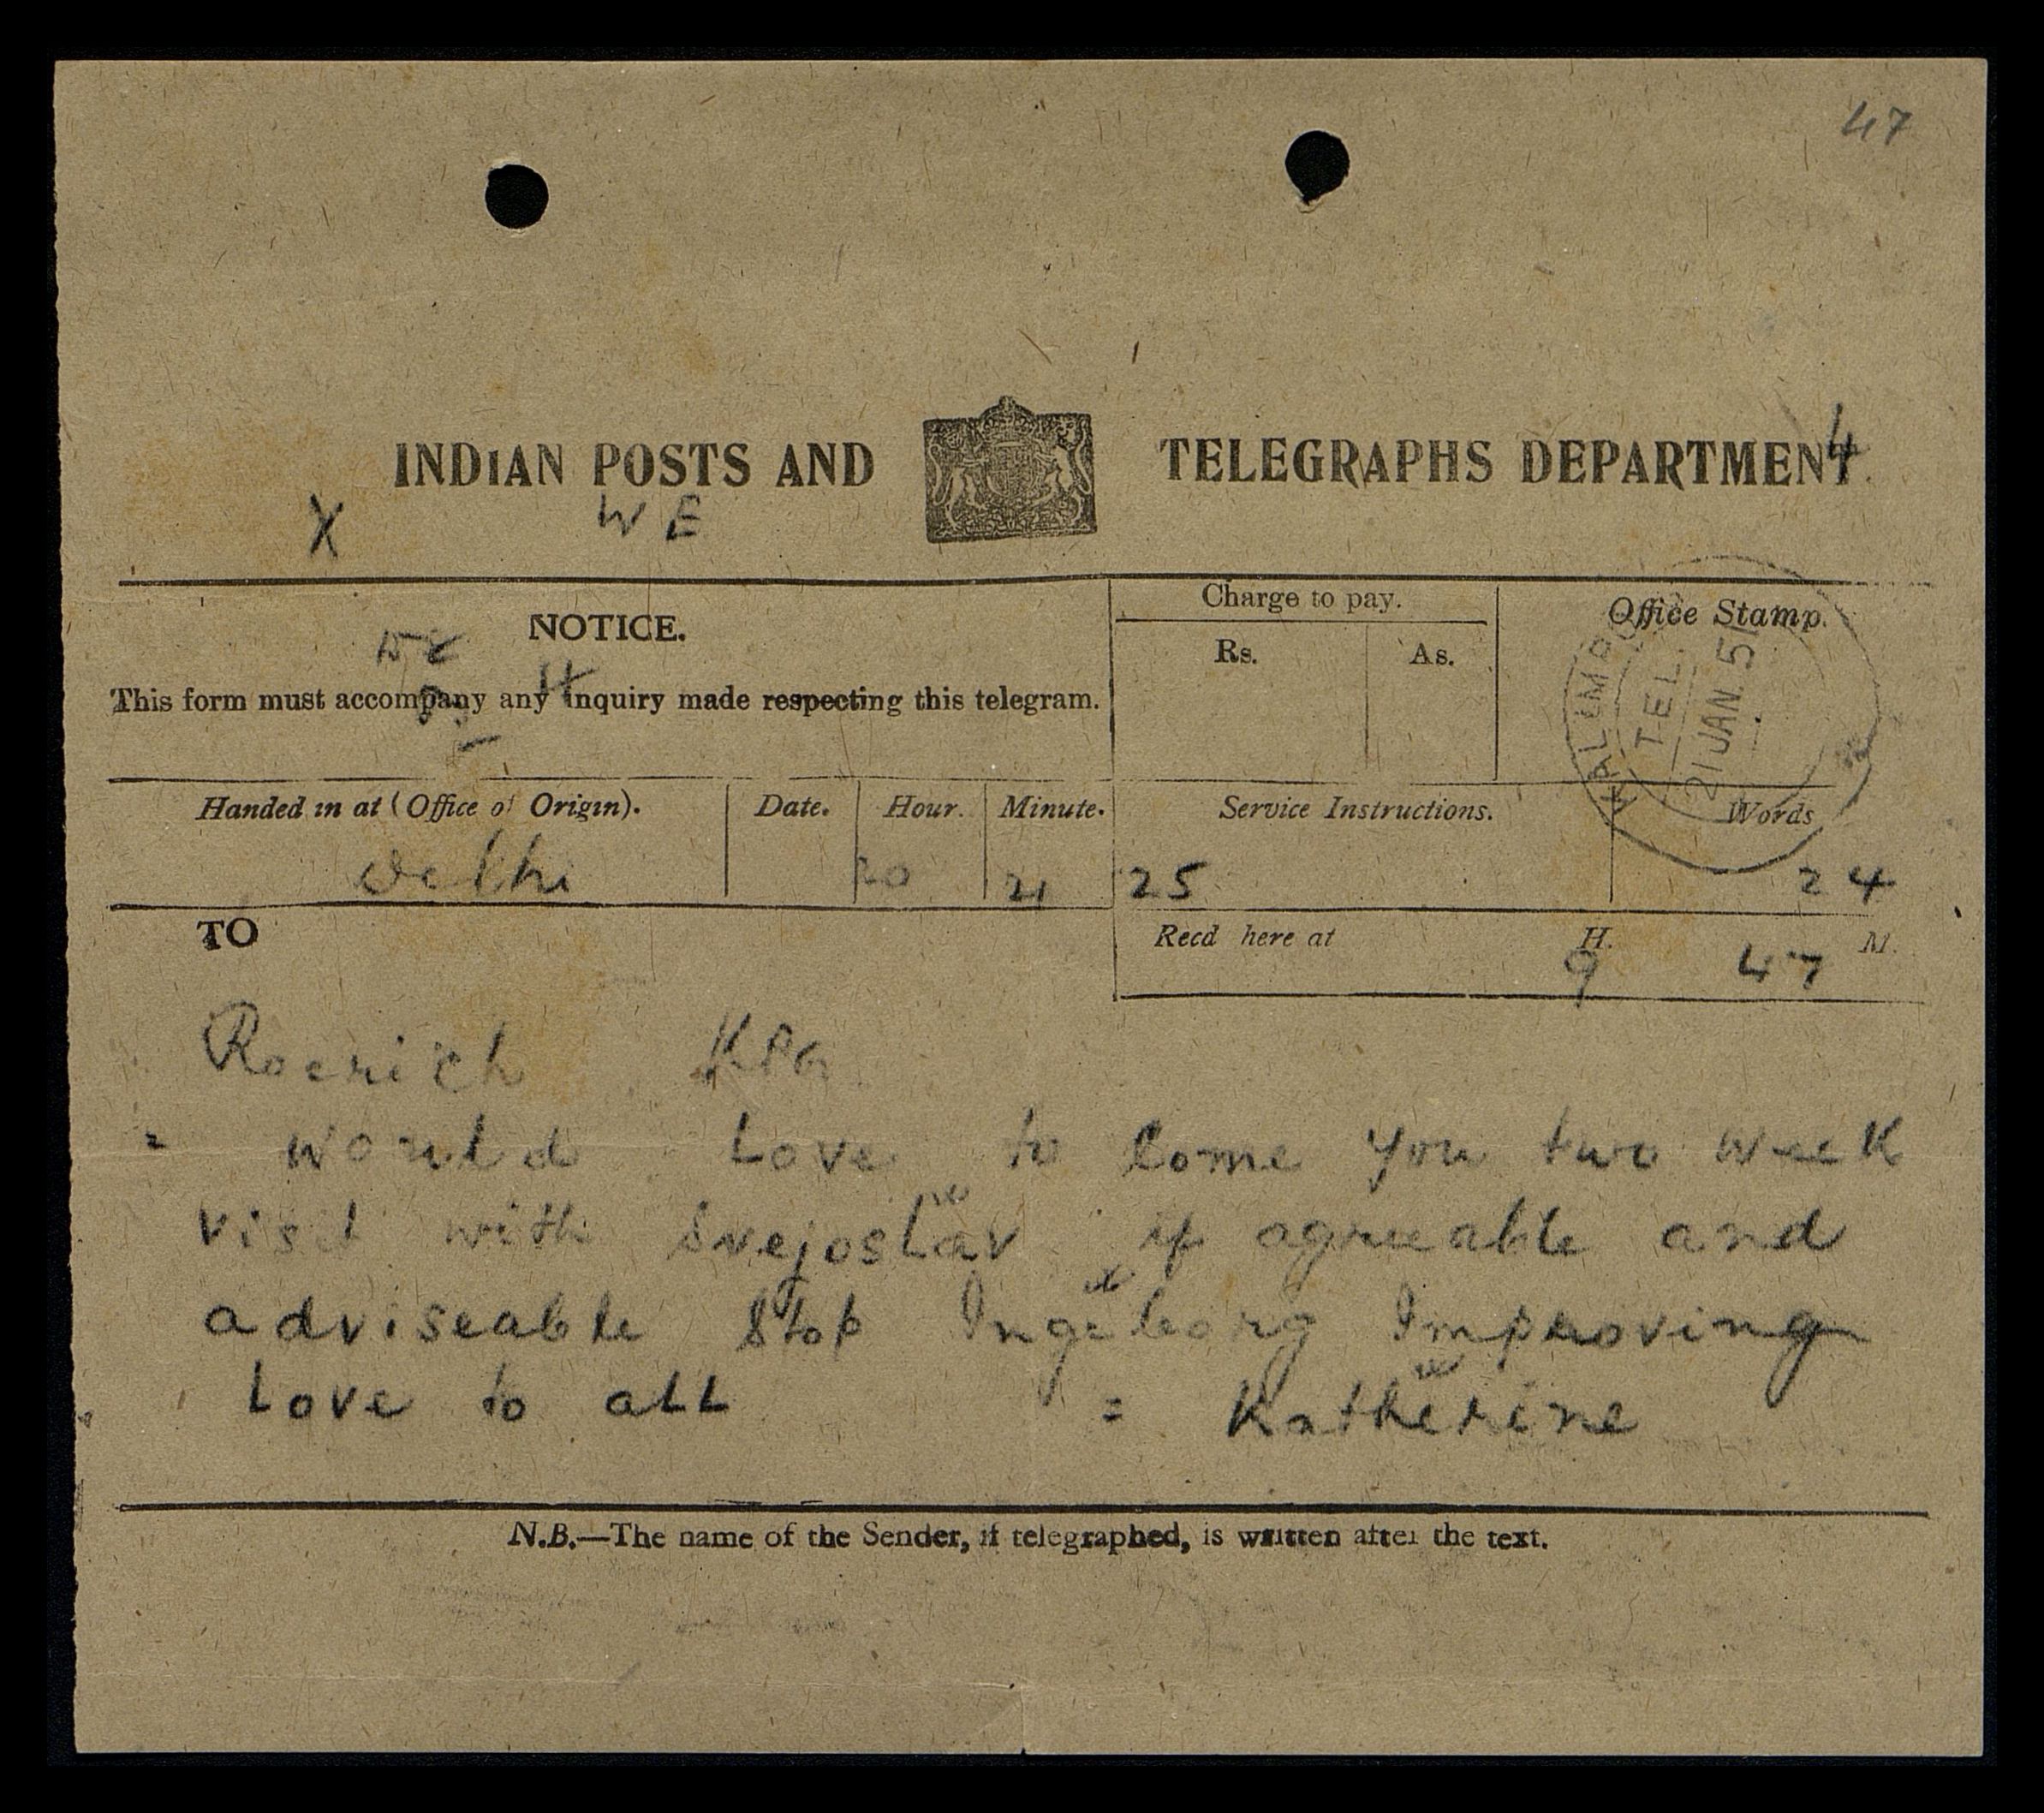 47
INDIAN POSTS AND TELEGRAPHS DEPARTMENT.
4
X WE
NOTICE.
This form must accompany any inquiry made respecting this telegram.
Charge to pay.
Rs. As.
Office Stamp.
KALIMPONG
TEL.
21 JAN. 51
Handed in at (Office of Origin). Date. Hour. Minute. Service Instructions. Words
Delhi 20 21 25 24
TO
Recd here at H. M.
9 47
Roerich KPG
= would Love to Come you two week
visit with Svejoslav if agreeable and
adviseable Stop Ingeborg Improving
Love to all = Katherine
N.B.—The name of the Sender, if telegraphed, is written after the text.